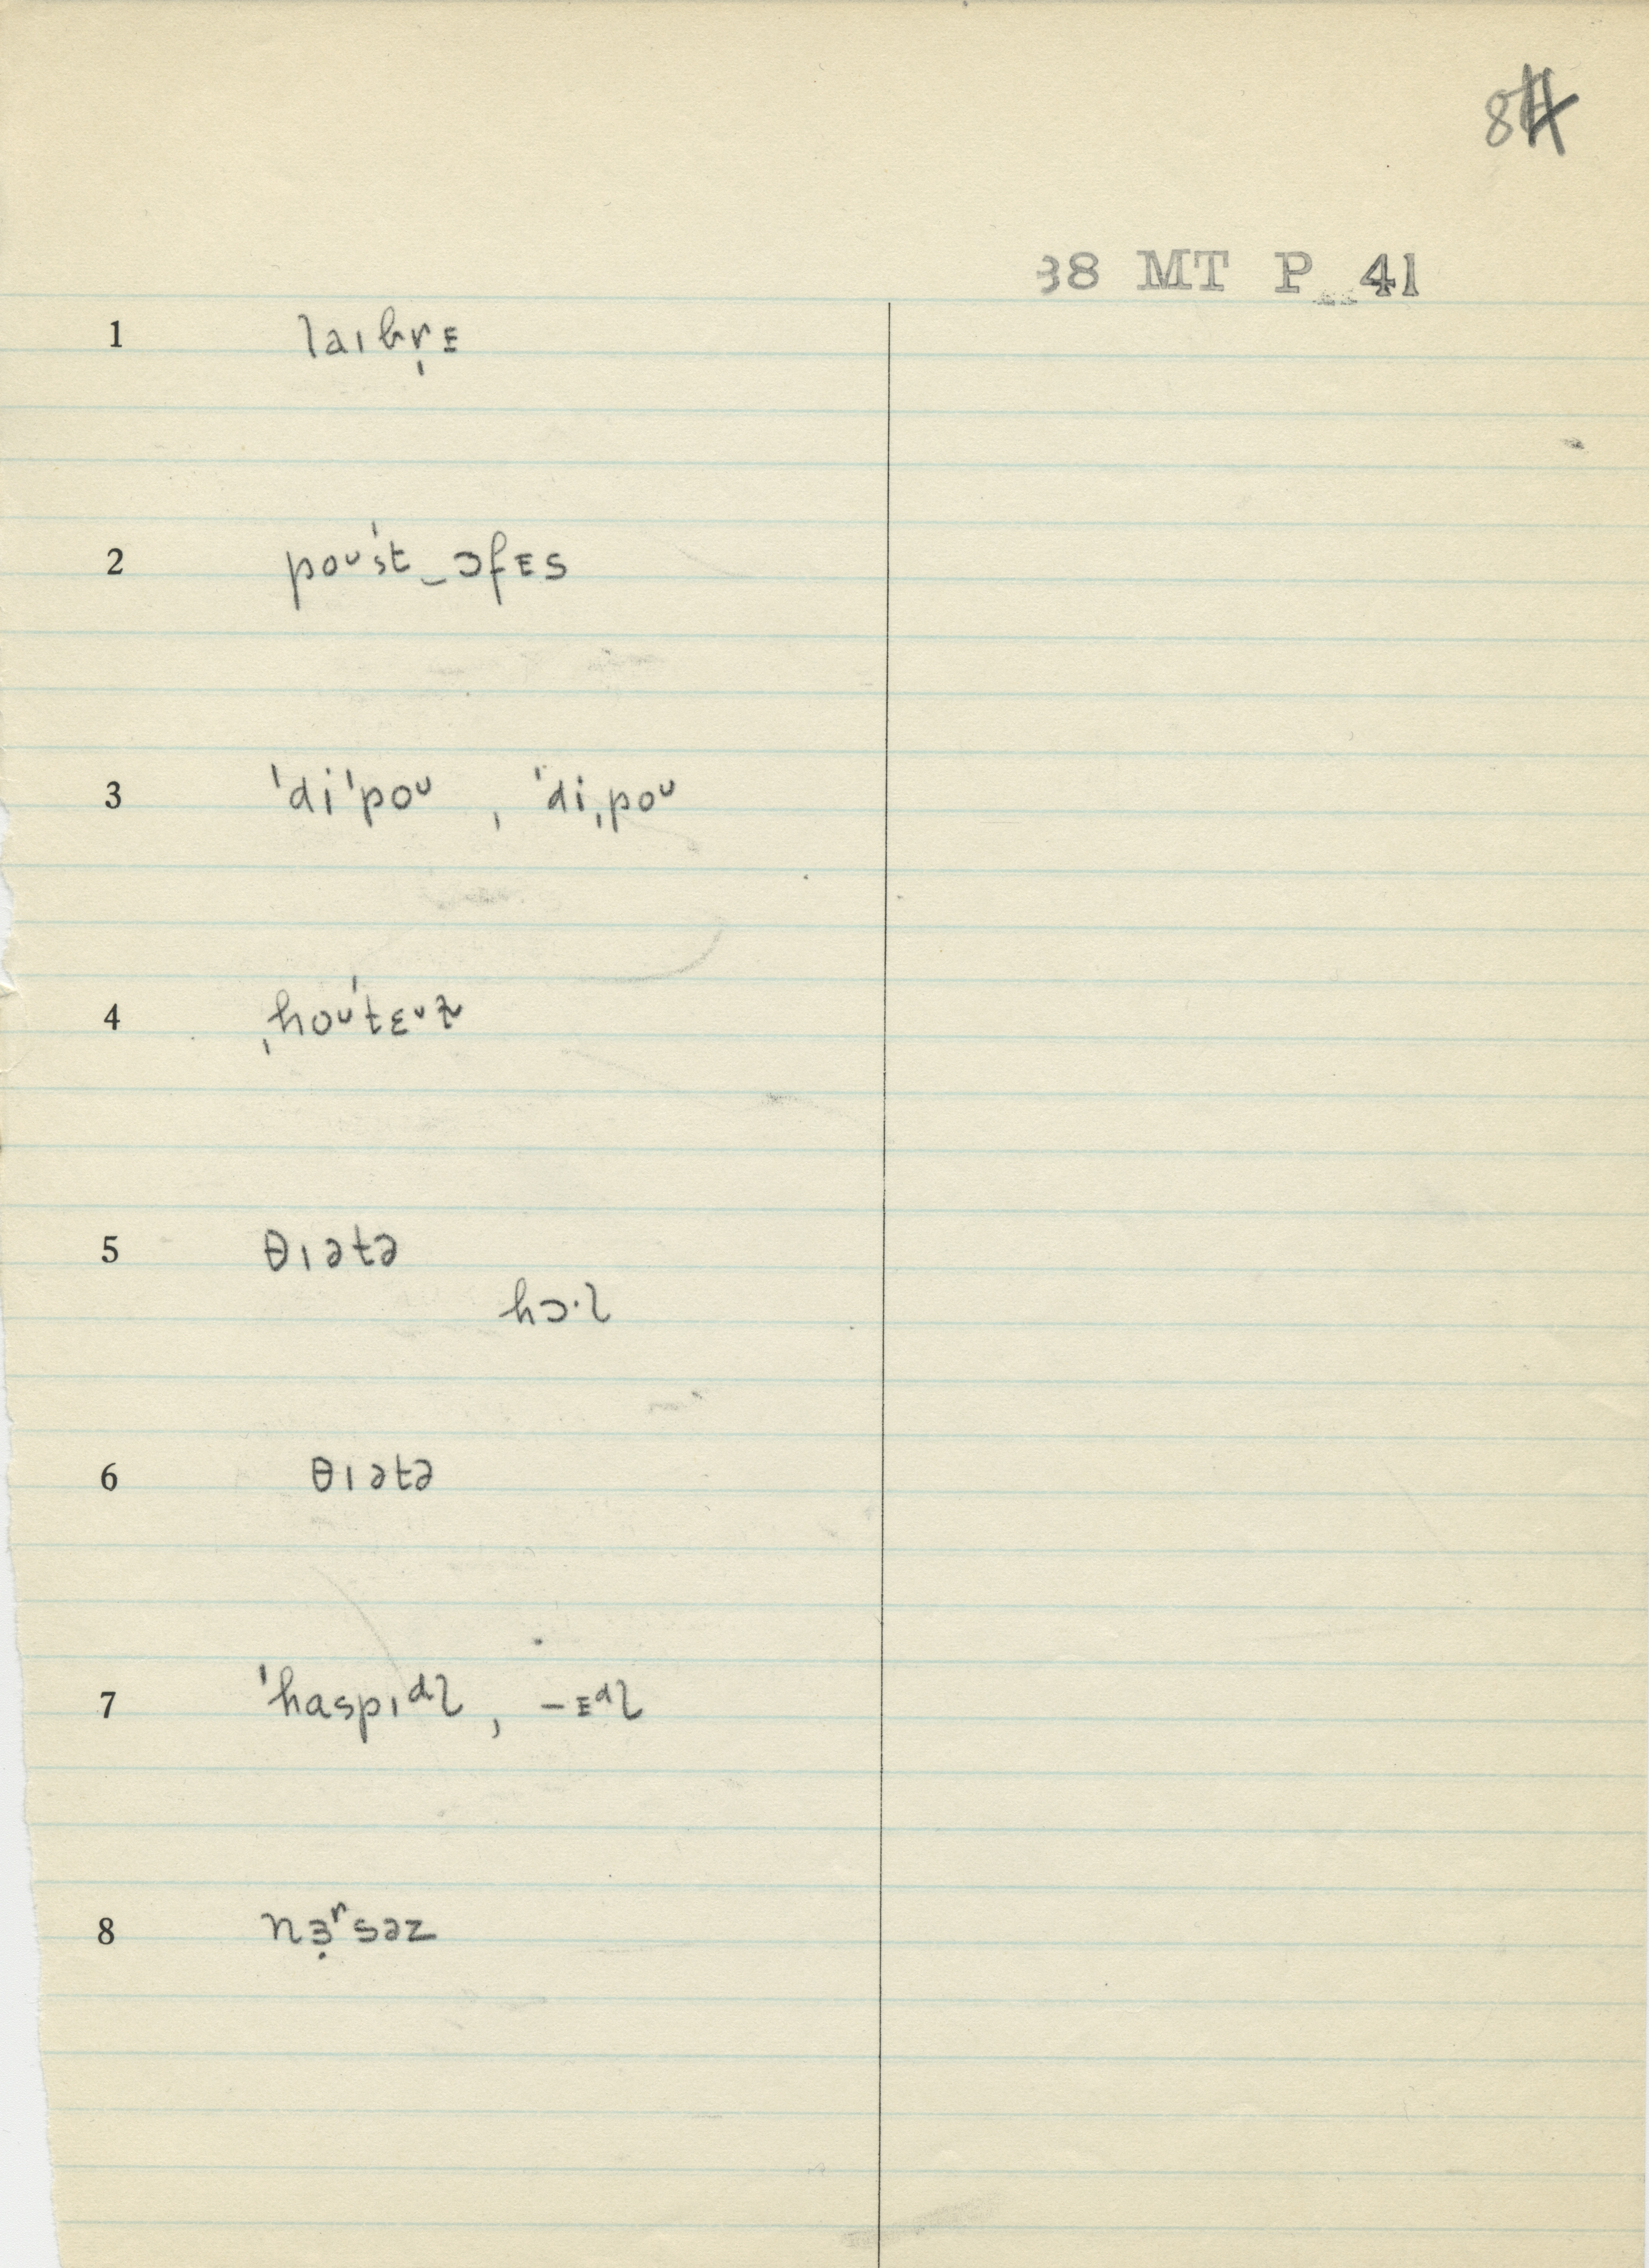 84
38 MT P 41
1 laɪbr̩ᴇ
2 poᴜˈst‿ɔfᴇs
3 ˈdiˈpoᴜ , ˈdiˌpoᴜ
4 ˌhoᴜˈtɛᴜɫ
5 θɪətə
hɔ·l
6 θɪətə
7 ˈhaspɪᵈl , –ᴇᵈl
8 nɜ̣ʳsəz